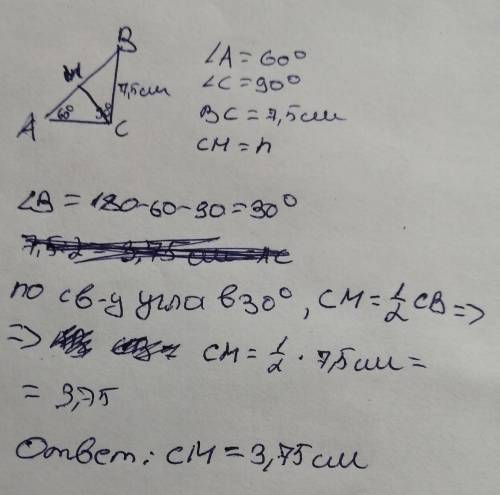 B
M
7,5см
∠A = 60°
∠C = 90°
60°
90°
A
C
BC = 7,5см
CM = h
∠B = 180-60-90 = 30°
по св-у угла в 30°, CM = 1/2 CB =>
=> CM = 1/2 · 7,5см =
= 3,75
Ответ: CM = 3,75см